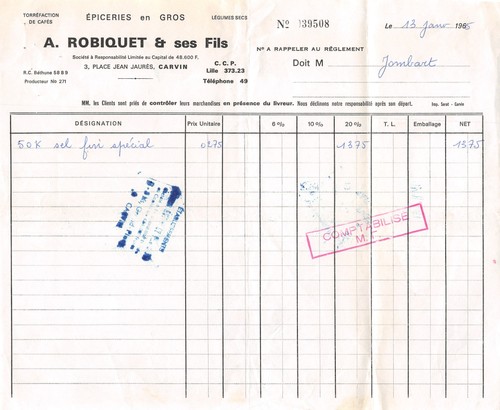 TORRÉFACTION
DE CAFÉS
ÉPICERIES en GROS
LÉGUMES SECS
Nº 039508
Le 13 janv 1965
A. ROBIQUET & ses Fils
Société à Responsabilité Limitée au Capital de 48.600 F.
3, PLACE JEAN JAURÈS, CARVIN
R.C. Béthune 58 B 5
Producteur No 271
C. C. P.
Lille 373.23
Téléphone 49
Nº A RAPPELER AU RÉGLEMENT
Doit M Jombart
MM. les Clients sont priés de contrôler leurs marchandises en présence du livreur. Nous déclinons notre responsabilité après son départ.
Imp. Sarot - Carvin
DÉSIGNATION Prix Unitaire 6 % 10 % 20 % T. L. Emballage NET
50 K sel fin spécial 0275 1375 1375
ETABLISSEMENTS
CARVIN
COMPTABILISÉ
M.